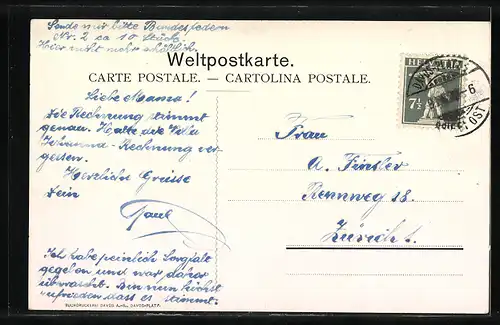 Sende mir bitte Bundesfedern
Nr. 2 ca 10 Stück.
Hier nicht mehr erhältlich.
Weltpostkarte.
CARTE POSTALE. — CARTOLINA POSTALE.
Liebe Mama!
Die Rechnung stimmt
genau. Hatte die
Johanna-Rechnung ver-
gessen.
Herzliche Grüsse
Dein
Paul
Ich habe peinlich Sorgfalt
gegeben und war daher
überrascht. Bin nun höchst
zufrieden dass es stimmt.
BUCHDRUCKEREI DAVOS A.-G., DAVOS-PLATZ.
HEL
7½
6
Frau
A. Finsler
Rennweg 18.
Zürich 1.